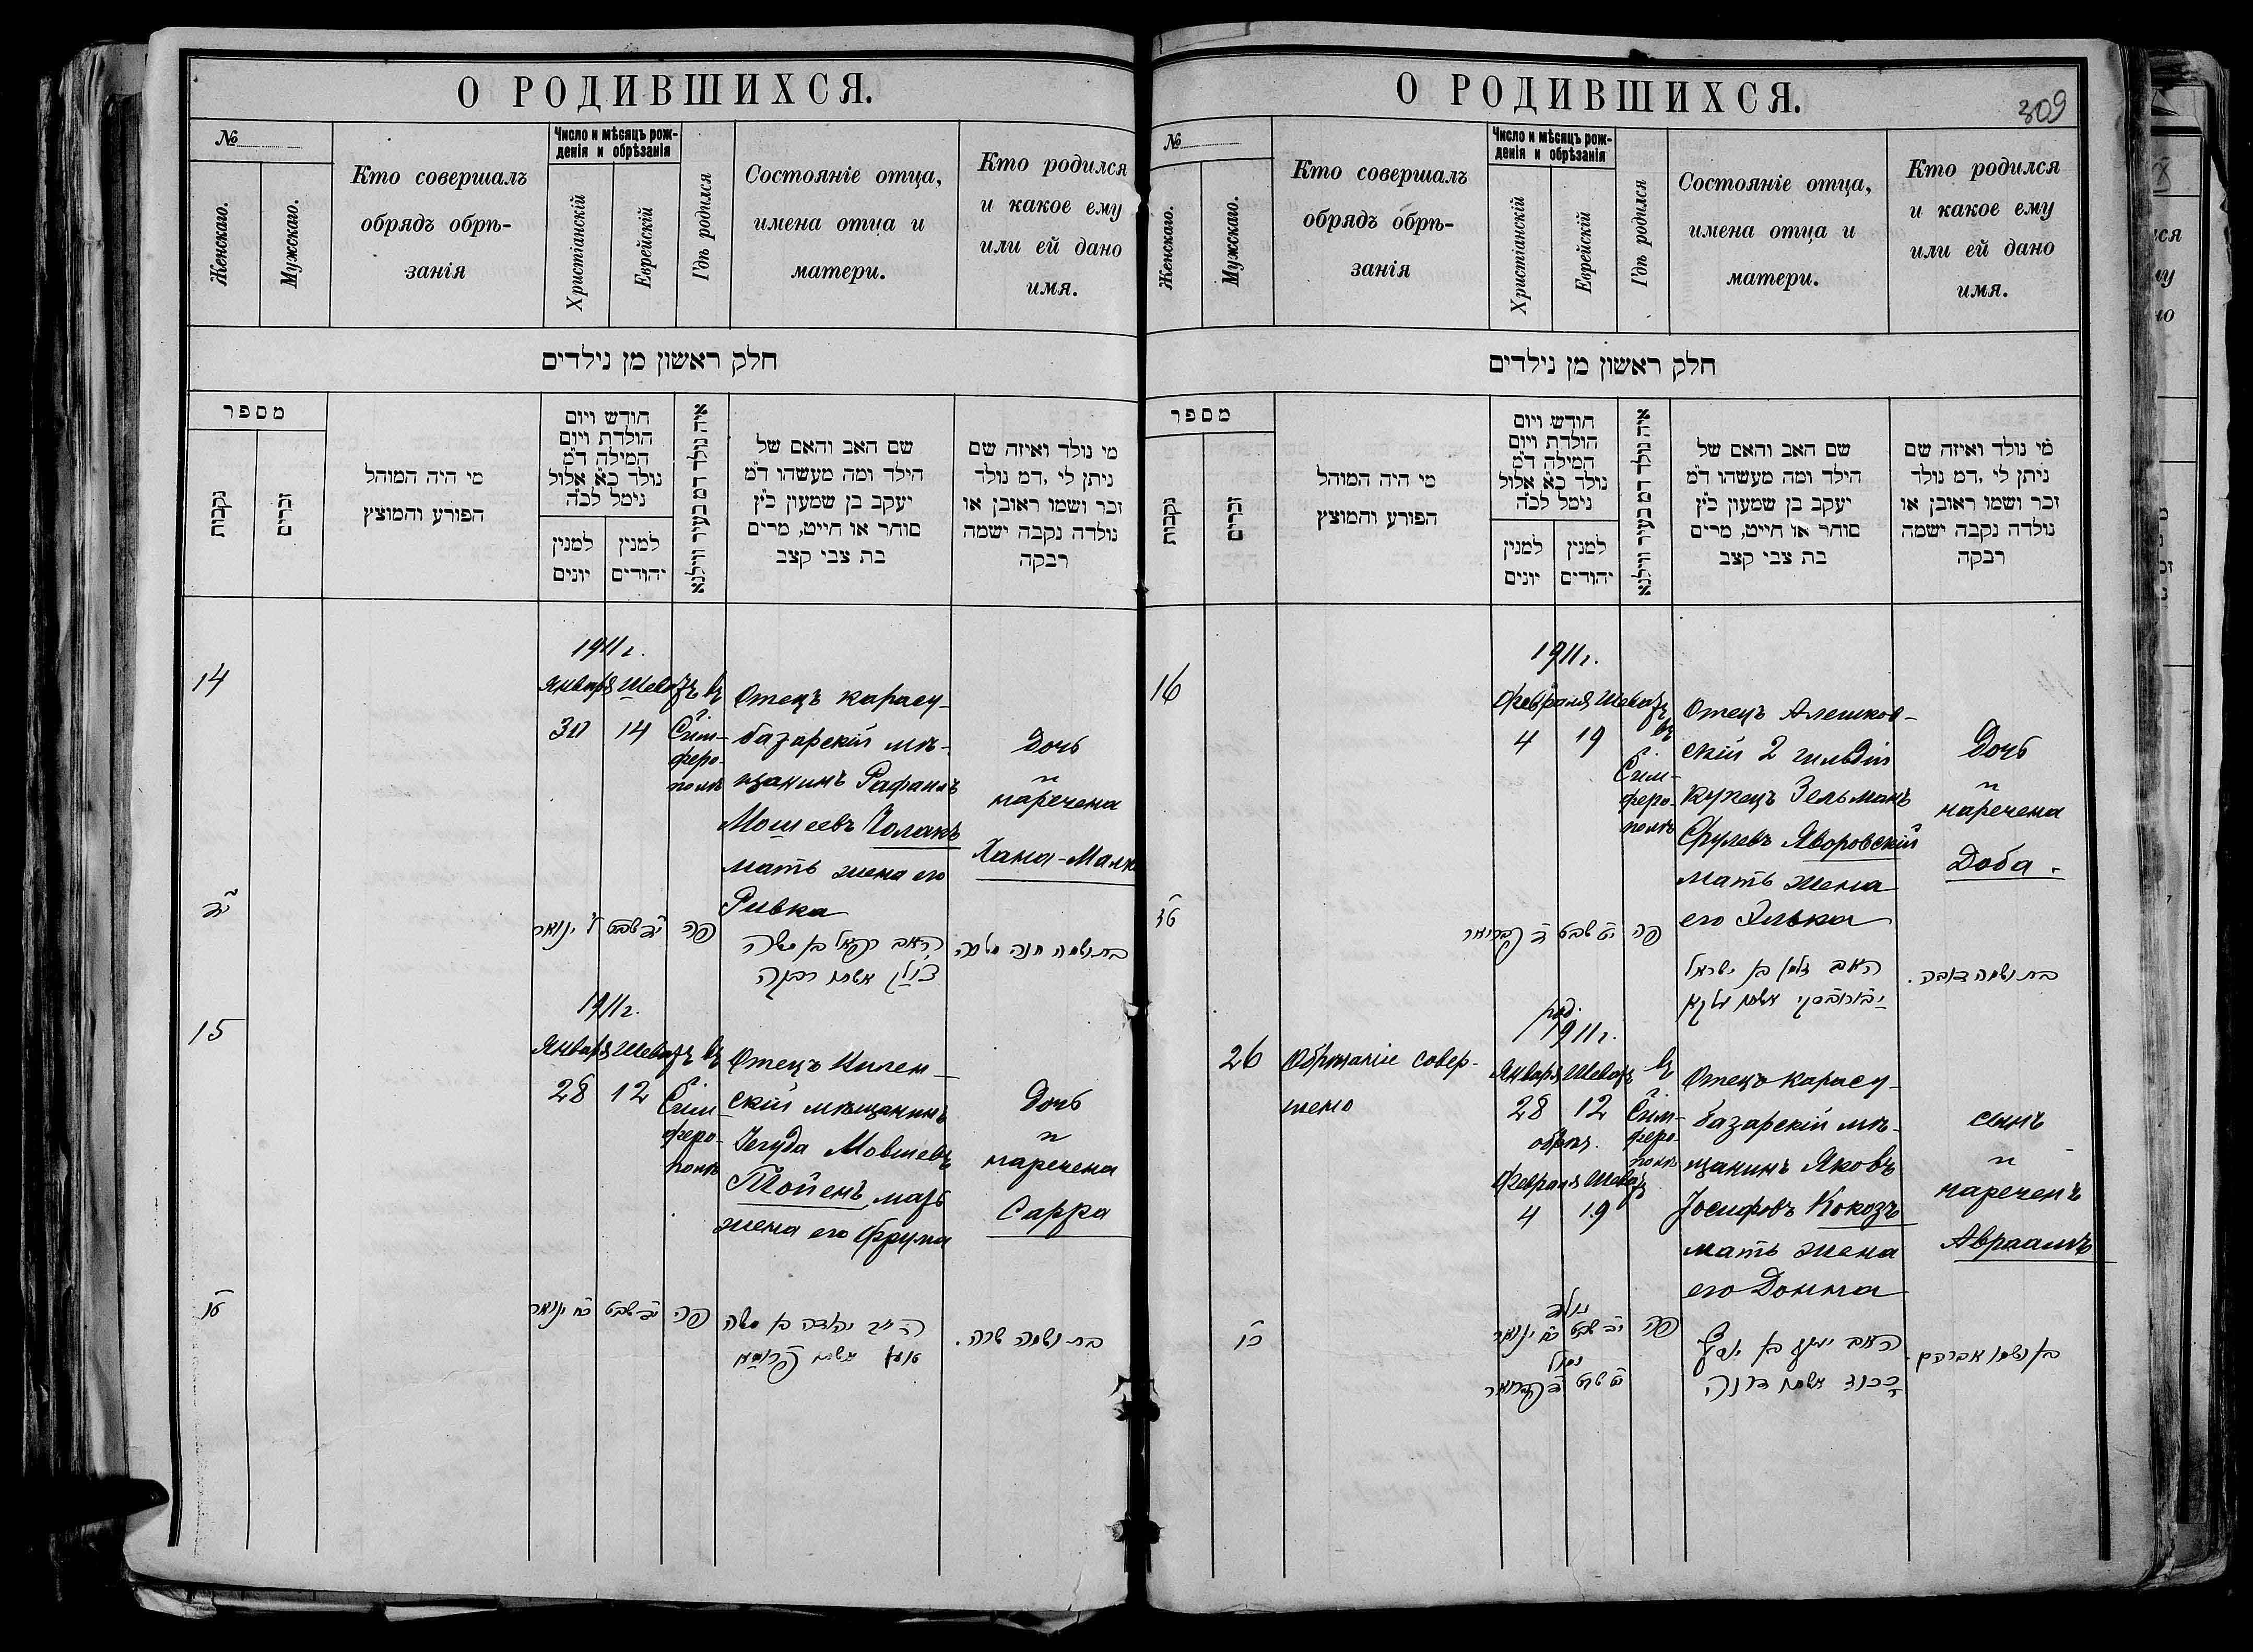 О РОДИВШИХСЯ.
№
Женскаго.
Мужскаго.
Кто совершалъ
обрядъ обрѣ-
занія
Число и мѣсяцъ рож-
денія и обрѣзанія
Христіанскій
Еврейскій
Гдѣ родился
Состояніе отца,
имена отца и
матери.
Кто родился
и какое ему
или ей дано
имя.
חלק ראשון מן נילדים
מספר
נקבות
זכרים
מי היה המוהל
הפורע והמוצץ
חודש ויום
הולדת ויום
המילה ד״מ
נולד כ״א אלול
נימל לכ״ה
למנין
יונים
למנין
יהודים
איה נולד דמ בעיר ווילנא
שם האב והאם של
הילד ומה מעשהו ד״מ
יעקב בן שמעון כ״ץ
סוחר או חייט, מרים
בת צבי קצב
מי נולד ואיזה שם
ניתן לי, דמ נולד
זכר ושמו ראובן או
נולדה נקבה ישמה
רבקה
14
1911 г.
Января Шеватъ въ
30 14
Сим-
феро-
полѣ
Отецъ карасу-
базарскій мѣ-
щанинъ Рафаилъ
Мошеевъ Чолакъ
мать жена его
Ривка
Дочь
и
наречена
Хана-Малка
י״ד
ל׳ ינואר
י״ד שבט
פה
האב רפאל בן משה
צולק אשתו רבקה
בת ושמה חנה מלכה
15
1911 г.
Января Шеватъ въ
28 12
Сим-
феро-
полѣ
Отецъ Вилен-
скій мѣщанинъ
Іегуда Мовшевъ
Тойенъ мать
жена его Фрума
Дочь
и
наречена
Сарра
ט״ו
כ״ח ינואר
י״ב שבט
פה
האב יהודה בן משה
אשתו פרומא
בת ושמה שרה.
О РОДИВШИХСЯ.
309
№
Женскаго.
Мужскаго.
Кто совершалъ
обрядъ обрѣ-
занія
Число и мѣсяцъ рож-
денія и обрѣзанія
Христіанскій
Еврейскій
Гдѣ родился
Состояніе отца,
имена отца и
матери.
Кто родился
и какое ему
или ей дано
имя.
חלק ראשון מן נילדים
מספר
נקבות
זכרים
מי היה המוהל
הפורע והמוצץ
חודש ויום
הולדת ויום
המילה ד״מ
נולד כ״א אלול
נימל לכ״ה
למנין
יונים
למנין
יהודים
איה נולד דמ בעיר ווילנא
שם האב והאם של
הילד ומה מעשהו ד״מ
יעקב בן שמעון כ״ץ
סוחר או חייט, מרים
בת צבי קצב
מי נולד ואיזה שם
ניתן לי, דמ נולד
זכר ושמו ראובן או
נולדה נקבה ישמה
רבקה
16
1911 г.
Февраля Шеватъ
4 19
въ
Сим-
феро-
полѣ
Отецъ Алешков-
скій 2 гильдіи
купецъ Зельманъ
Срулевъ Яворовскій
мать жена
его Элька
Дочь
и
наречена
Доба.
ט״ז
ד׳ פברואר
י״ט שבט
פה
האב זלמן בן ישראל
יבורובסקי אשתו עלקא
בת ושמה דובה.
26
Обрѣзаніе совер-
шено
род.
1911 г.
Января Шеватъ въ
28 12
обрѣз.
Февраля Шеватъ
4 19
Сим-
феро-
полѣ
Отецъ карасу-
базарскій мѣ-
щанинъ Яковъ
Іосифовъ Кокозъ
мать жена
его Донна
сынъ
и
нареченъ
Авраамъ
כ״ו
נולד
כ״ח ינואר
י״ב שבט
נמול
ד׳ פברואר
י״ט שבט
פה
האב יעקב בן יוסף
ככוז אשתו דונה
בן ושמו אברהם.